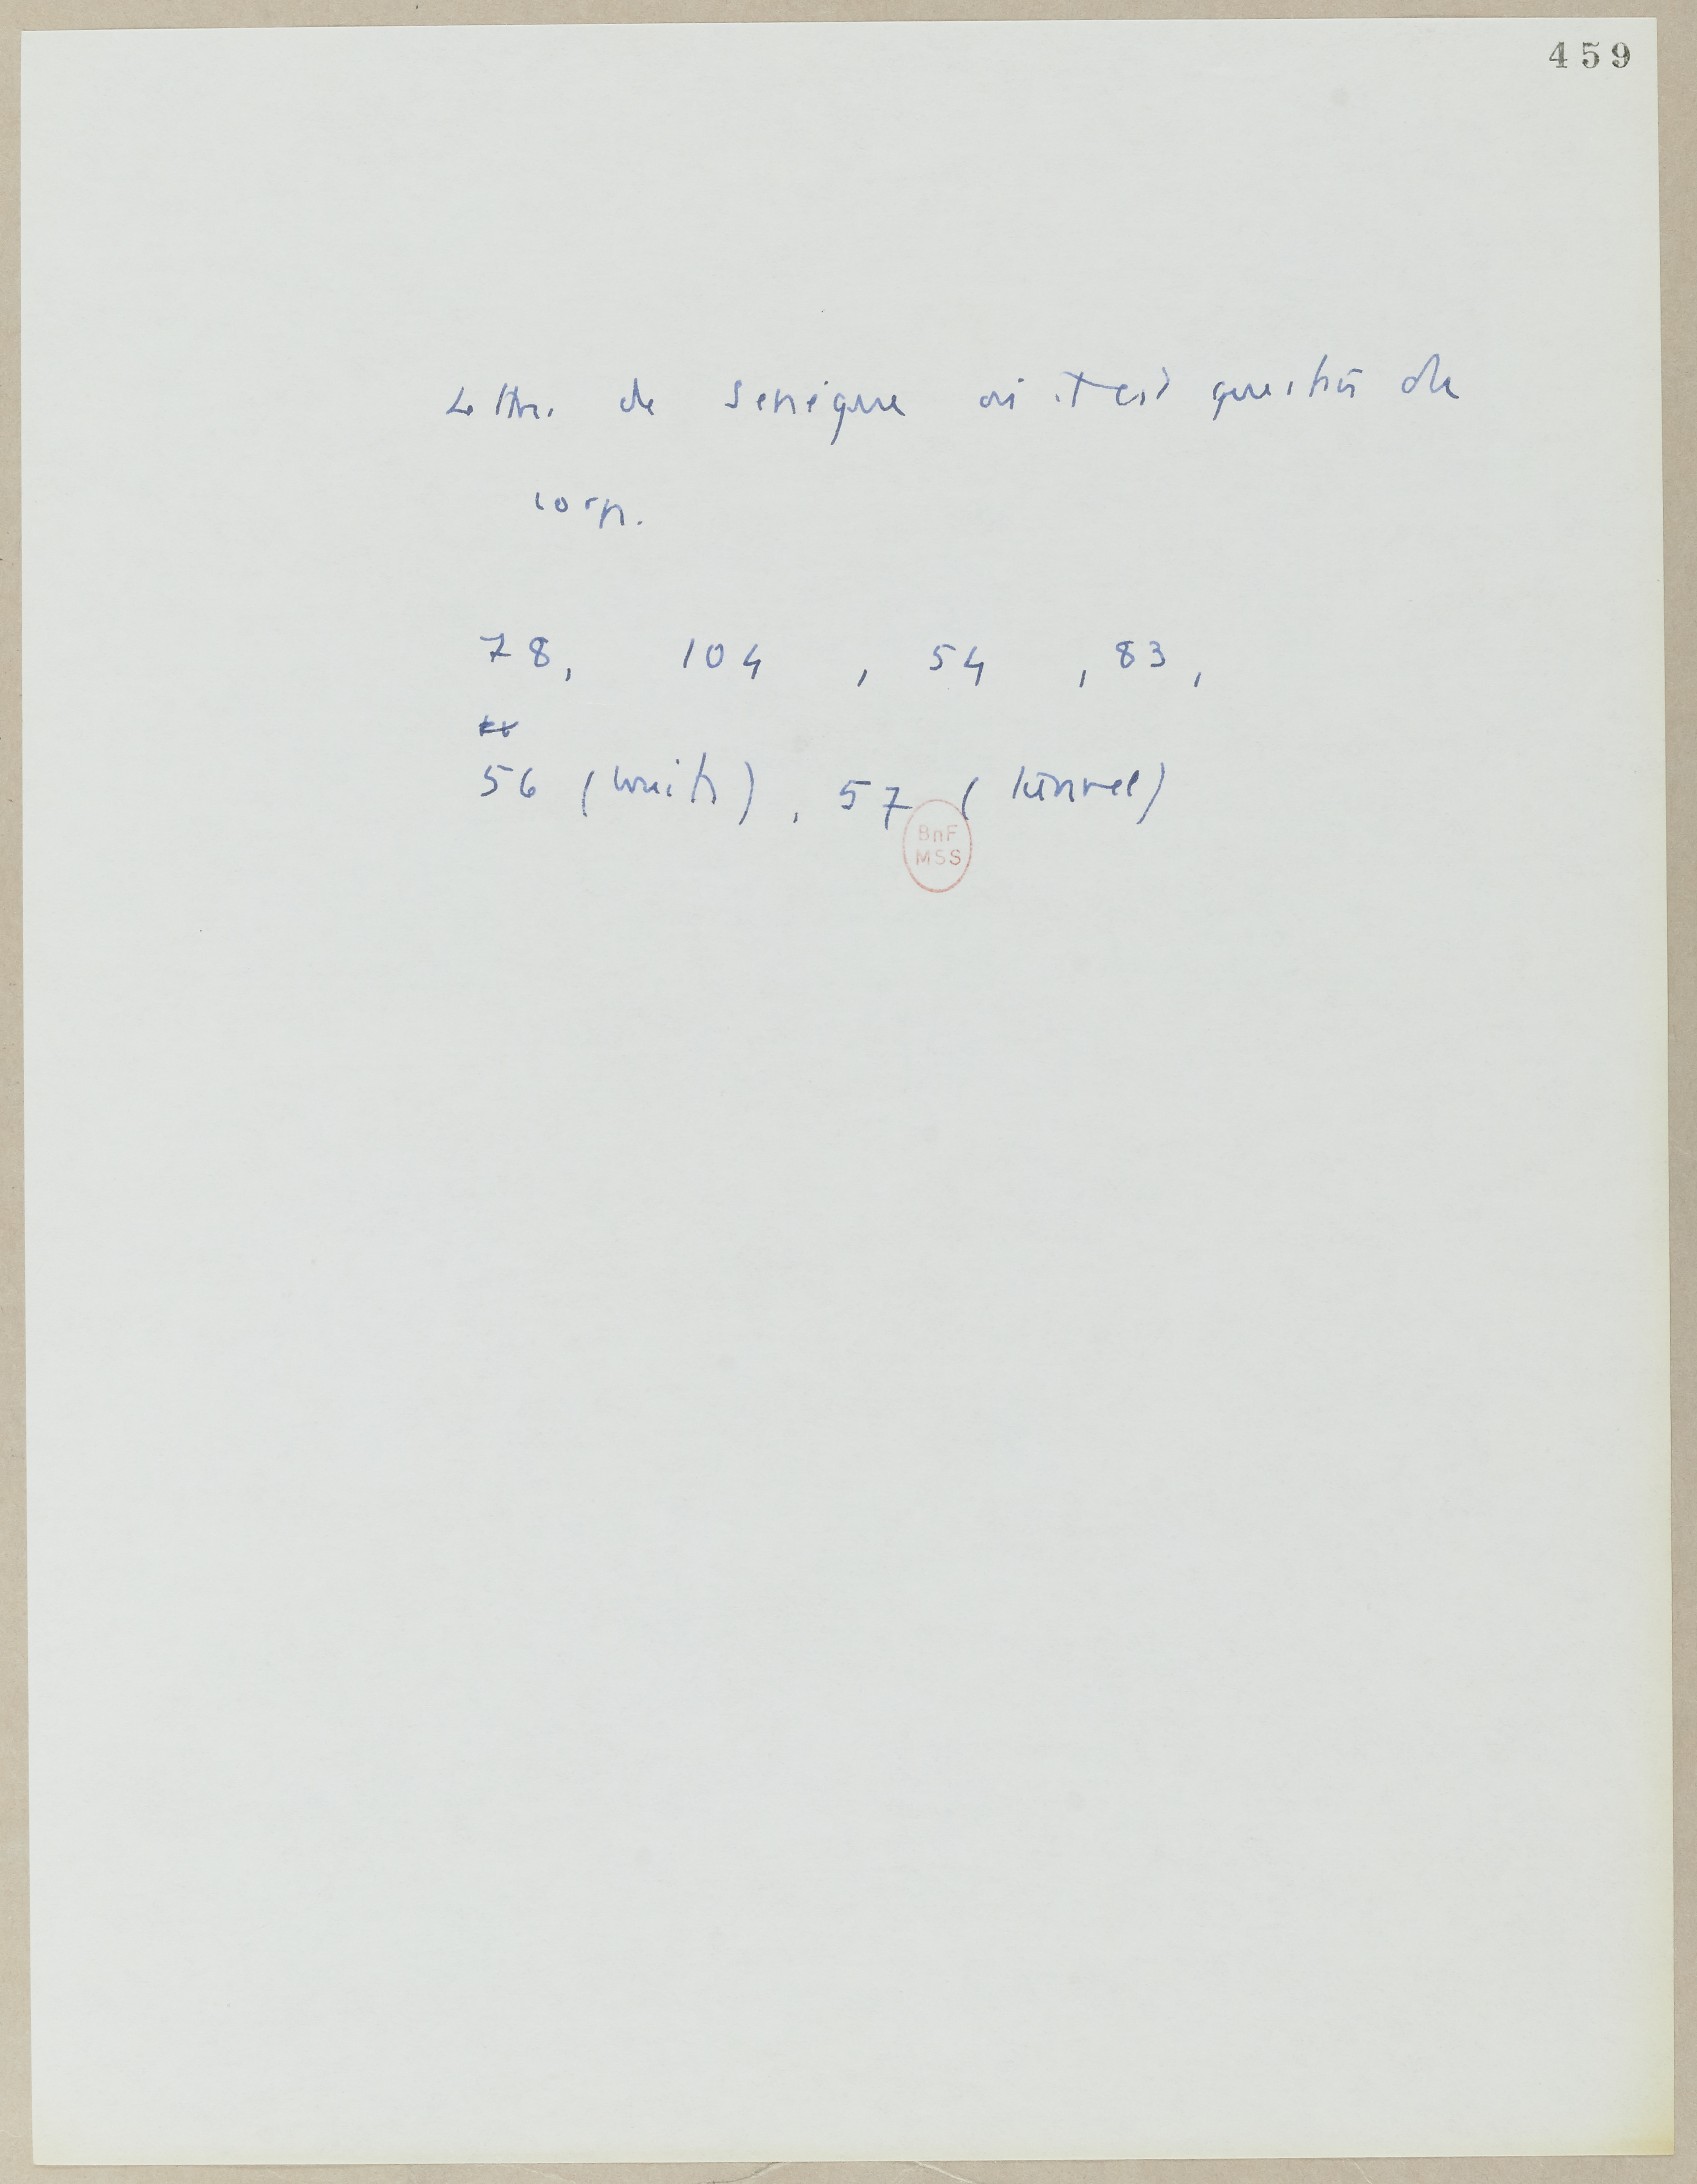 459
Lettres de Sénèque où il est question de
corps.
78, 104, 54, 83,
56 (bruits), 57 (tunnel)
BnF
MSS